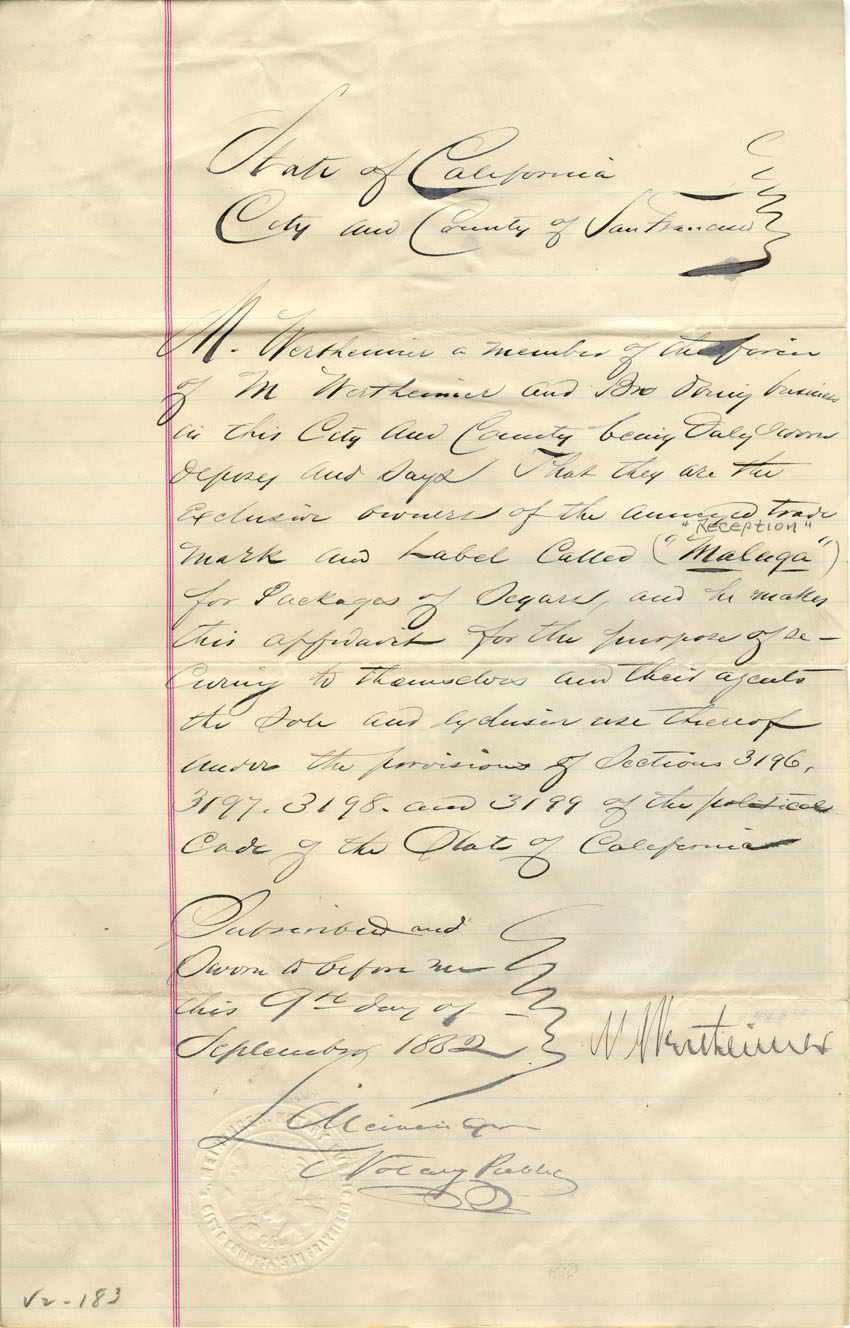 State of California
City and County of San Francisco
M. Wertheimer a member of the firm
of M Wertheimer and Bro doing business
in this City and County being Duly Sworn
deposes and says That they are the
Exclusive owners of the annexed trade
"RECEPTION"
mark and Label Called ("Malaga")
for Packages of Segars, and he makes
this affidavit for the purpose of se-
curing to themselves and their agents
the sole and exclusive use thereof
under the provisions of Sections 3196,
3197. 3198. and 3199 of the political
Code of the State of California
Subscribed and
Sworn to before me
this 9th day of
September 1882
M Wertheimer
Notary Public
NOTARY PUBLIC
CITY & COUNTY SAN FRANCISCO
CAL.
V2-183